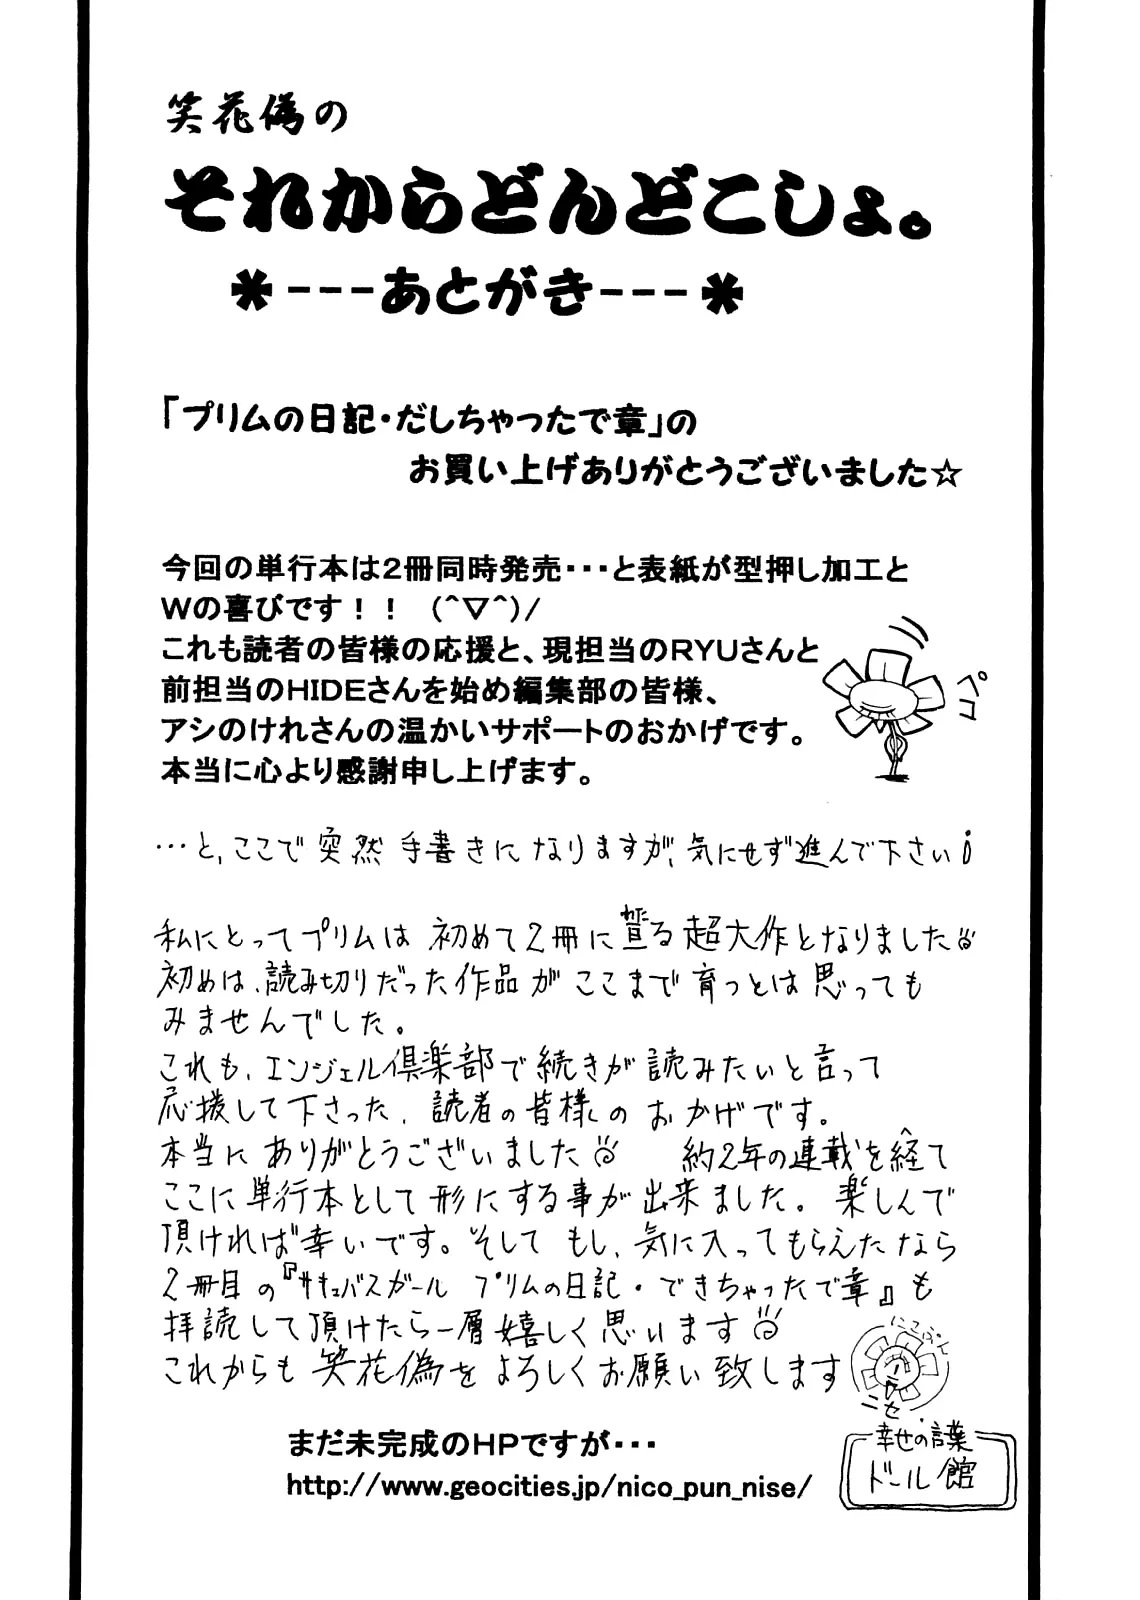 笑花偽の
それからどんどこしょ。
*---あとがき---*
「プリムの日記・だしちゃったで章」の
お買い上げありがとうございました☆
今回の単行本は2冊同時発売・・・と表紙が型押し加工と
Wの喜びです！！ (^▽^)/
これも読者の皆様の応援と、現担当のRYUさんと
前担当のHIDEさんを始め編集部の皆様、
アシのけれさんの温かいサポートのおかげです。
本当に心より感謝申し上げます。
ペコ
…と、ここで突然手書きになりますが、気にせず進んで下さい
私にとってプリムは初めて2冊に亘る超大作となりました
わた
初めは、読み切りだった作品がここまで育つとは思っても
みませんでした。
これも、エンジェル倶楽部で続きが読みたいと言って
応援して下さった、読者の皆様のおかげです。
本当にありがとうございました 約2年の連載を経て
ここに単行本として形にする事が出来ました。楽しんで
頂ければ幸いです。そしてもし、気に入ってもらえたなら
2冊目の『サキュバスガール プリムの日記・できちゃったで章』も
拝読して頂けたら一層嬉しく思います
これからも笑花偽をよろしくお願い致します
にこぷん
ニセ.
まだ未完成のHPですが・・・
http://www.geocities.jp/nico_pun_nise/
幸せの言葉
ドール館